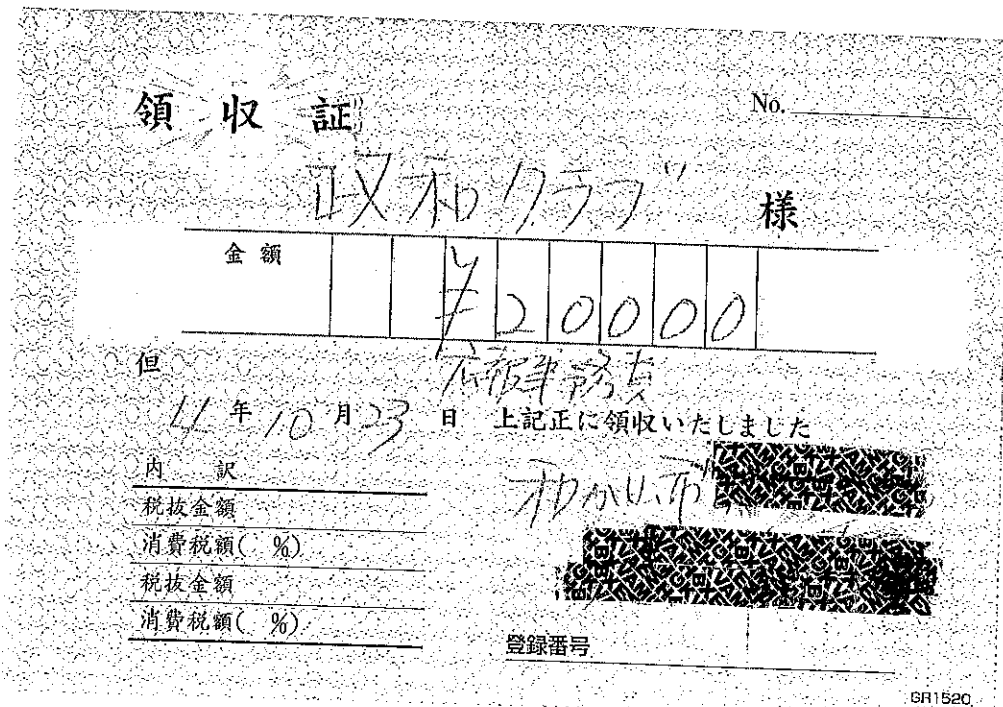 領収証
No.
政和クラブ 様
金額 ¥20000
但 広報事務費
4年10月23日 上記正に領収いたしました
内訳
税抜金額
消費税額( %)
税抜金額
消費税額( %)
登録番号
GR1520